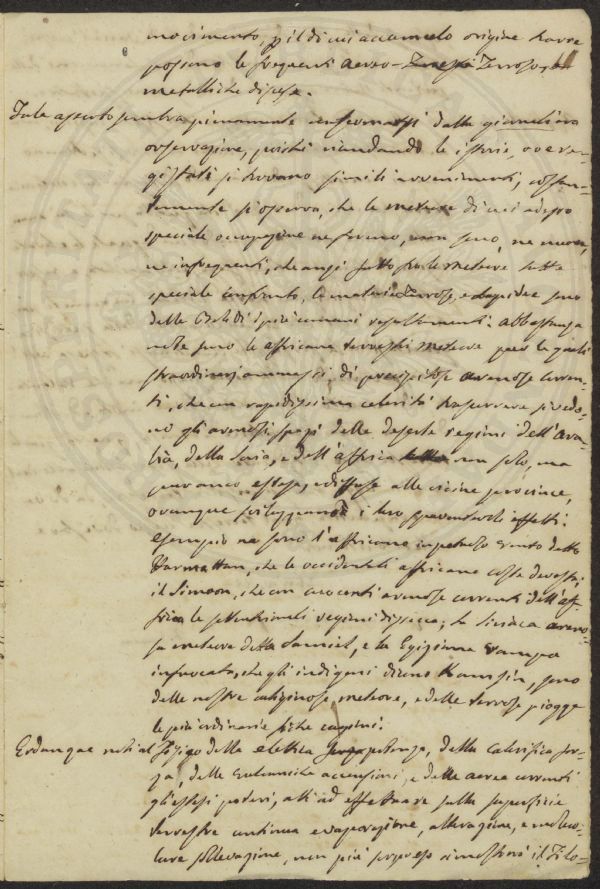 movimento, p il di cui accumulo origine trarre
possono le frequenti aereo- Terroso,
metalliche discese.
Tale asserto sembra pienamente confermarsi dalla giornaliera
osservazione, poichè riandando le istorie, ove re-
gistrati si trovano simili avvenimenti, costan-
temente si osserva, che le meteore di cui adesso
speciale occupazione ne ferono, non sono, ne nuove,
ne infrequenti, che anzi fatto fra le meteore tutte
speciale confronto, le materie Terrose, e lapidee sono
delle i più comuni resultamenti. Abbastanza
note sono le affricane terrestri meteore per le quali
straordinarj ammassi, di precipitose arenose corren-
ti, che con rapidissima celerità trascorrere si vedo-
no gli arenosi spazj delle deserte regioni dell'Ara-
bia, della Siria, e dell'Affrica non solo, ma
per anco estese, e diffuse alle vicine provincie,
ovunque sviluppando i loro spaventevoli effetti.
Esempio ne sono l'affricano impetuoso vento detto
Harmattan, che le occidentali affricane coste devasta,
il Simoon, che con cuocenti arenose correnti dell'Af-
frica le settentrionali regioni dissecca; la Siriaca areno-
sa meteora detta Samiel, e la Egiziana vampa
infuocata, che gl'indigeni dicono Kamsin, sono
delle nostre caliginose meteore, e delle terrose piogge
le più ordinarie fisiche cagioni.
Or dunque noti al Fisico della elettrica potenza, della calorifica for-
za, delle vulcaniche accensioni, e delle aeree correnti
gl'istessi poteri, atti ad effettuare sulla superficie
terrestre continua evaporazione, alterazione, e molecu-
lare sollevazione, non più sorpreso si mostrerà il Filo-